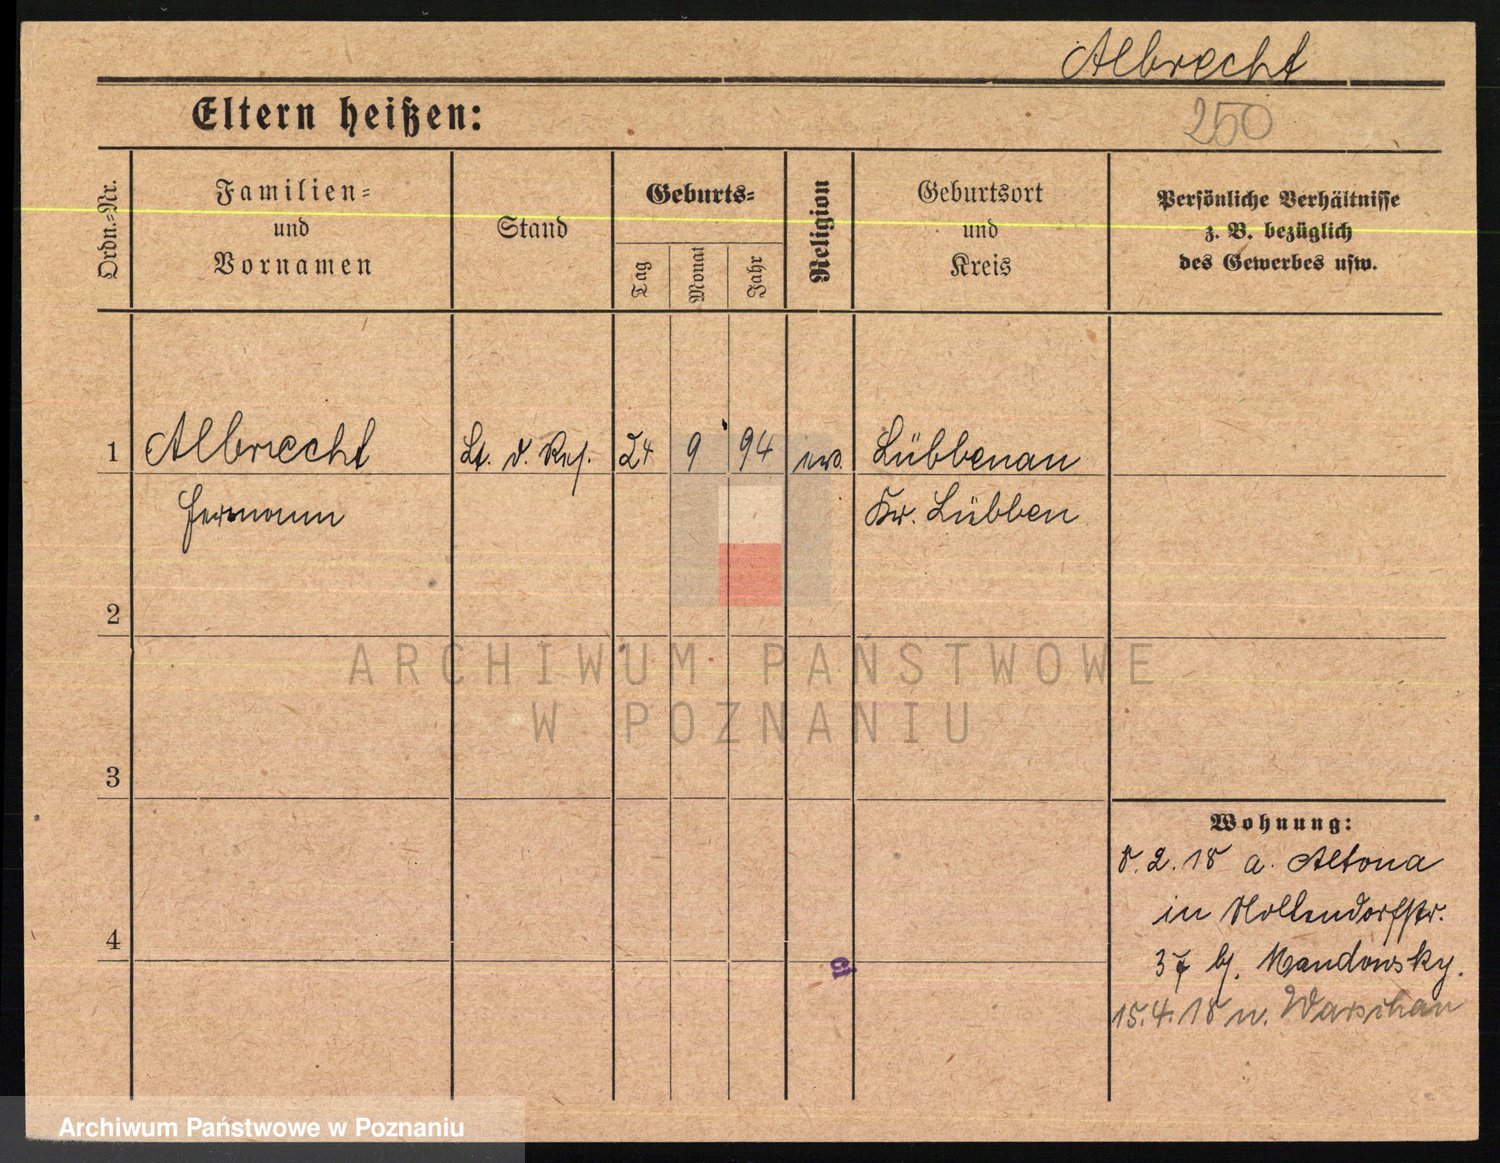 Albrecht
Eltern heißen:
250
Ordn.=Nr.
Familien=
und
Vornamen
Stand
Geburts=
Tag
Monat
Jahr
Religion
Geburtsort
und
Kreis
Persönliche Verhältnisse
z. B. bezüglich
des Gewerbes usw.
1
Albrecht
Lt. d. Res.
24
9
94
ev.
Lübbenau
Hermann
Kr. Lübben
2
ARCHIWUM PAŃSTWOWE
W POZNANIU
3
Wohnung:
8.2.18 a. Altona
in Nollendorfstr.
37 bj. Mandowsky.
4
15.4.18 n. Warschau
Archiwum Państwowe w Poznaniu